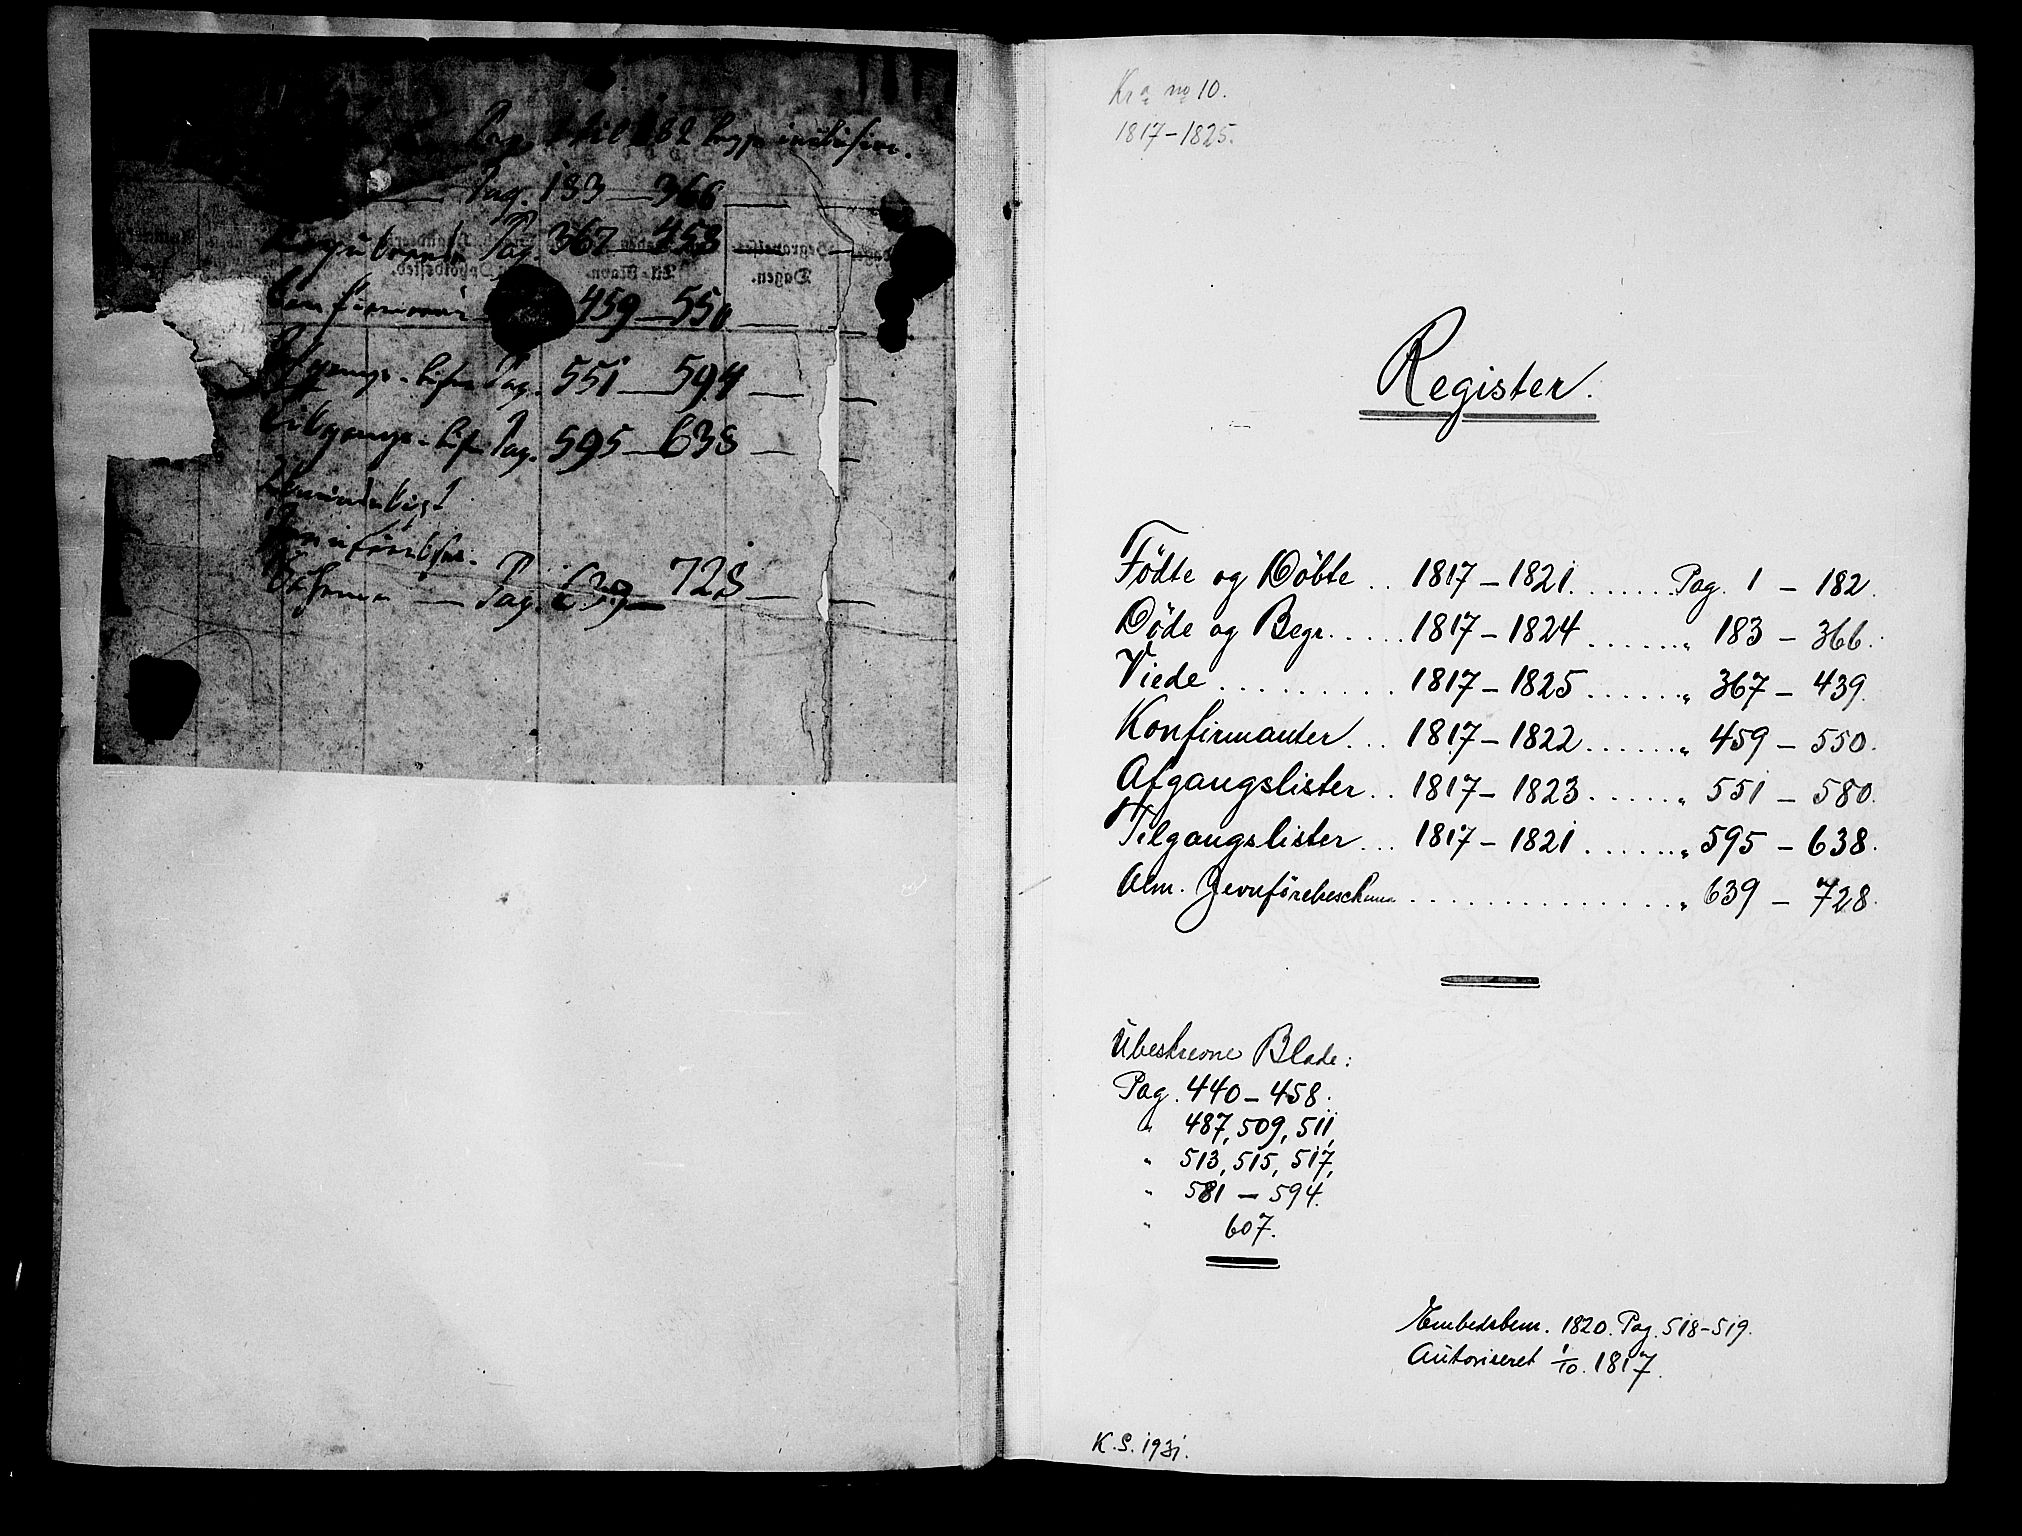 Pag. 1 til 182 begge inclusive.
Pag. 183 — 366
Pag. 367 — 458
459 — 550
Afgangs-lister Pag. 551 — 594
Tilgangs-list Pag. 595 — 638
Almindeligt
Jevnførelses-
Pag. 639 — 728
Begravelses
Dagen.
Kra no 10.
1817-1825.
Register.
Födte og Döbte .. 1817-1821 ....... Pag. 1 - 182.
Döde og Begr. .... 1817-1824 ...... " 183 - 366.
Viede .......... 1817-1825 ...... " 367 - 439.
Konfirmanter ... 1817-1822 ...... " 459 - 550.
Afgangslister .. 1817-1823 ...... " 551 - 580.
Tilgangslister ... 1817-1821 ...... " 595 - 638.
Alm. Jevnförelseschema .............. " 639 - 728.
Ubeskrevne Blade:
Pag. 440-458.
" 487, 509, 511,
" 513, 515, 517,
" 581 - 594.
" 607.
Embedsbem. 1820. Pag. 518-519.
Autoriseret 1/10. 1817.
K.S. 1931.